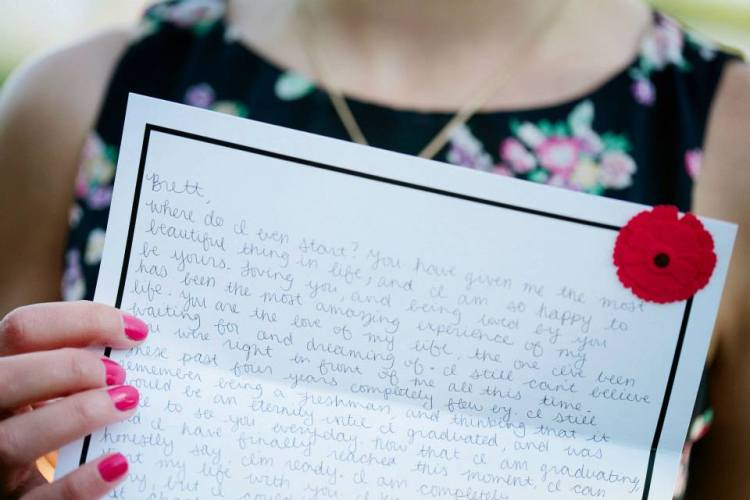 Brett,
Where do I even start? You have given me the most
beautiful thing in life, and I am so happy to
be yours. Loving you, and being loved by you
has been the most amazing experience of my
life. You are the love of my life, the one I've been
waiting for and dreaming of. I still can't believe
you were right in front of me all this time.
these past four years completely flew by. I still
remember being a freshman, and thinking that it
would be an eternity until I graduated, and was
to see you everyday. Now that I am graduating,
I have finally reached this moment, I can
honestly say, I'm ready. I am completely
my life with you.
but I could